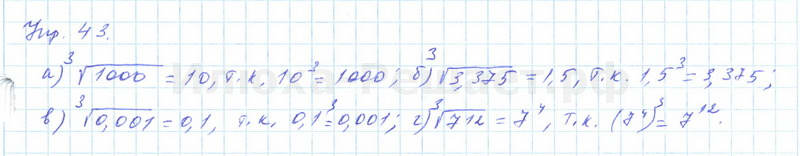 Упр. 43.
а) ∛1000 = 10, т.к. 10³ = 1000; б) ∛3,375 = 1,5, т.к. 1,5³ = 3,375;
в) ∛0,001 = 0,1, т.к. 0,1³ = 0,001; г) ∛712 = 7⁴, т.к. (7⁴)³ = 7¹².